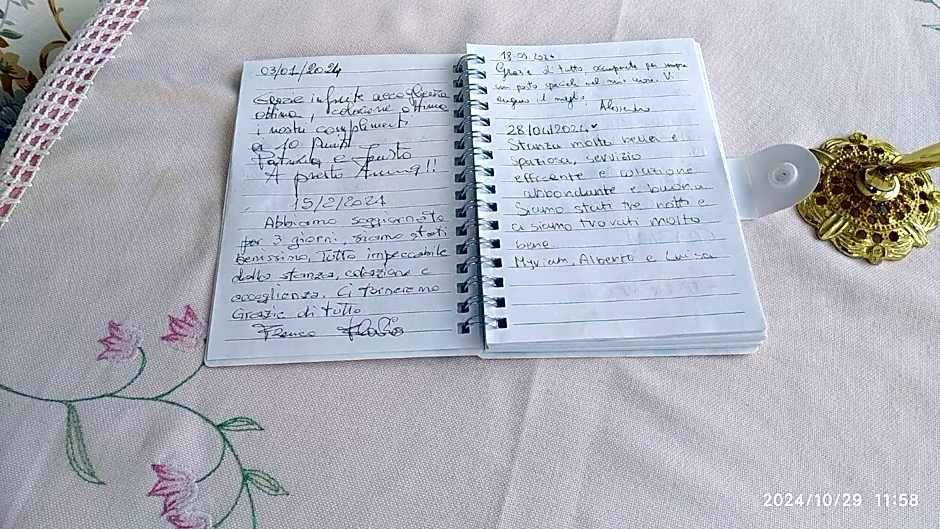 03/01/2024
Grazie infinite accoglienza
ottima, colazione ottima
i nostri complimenti
a 10 punti
e Fausto
A presto Auguri!!
15/2/2024
Abbiamo soggiornato
per 3 giorni, siamo stati
benissimo, Tutto impeccabile
dalla stanza, colazione e
accoglienza. Ci torneremo
Grazie di tutto
Franco
18.03.2024
Grazie di tutto, per sempre
un posto speciale nel mio cuore. Vi
auguro il meglio. Alessandro
28/04/2024
Stanza molto bella e
spaziosa, servizio
efficente e colazione
abbondante e buona
Siamo stati tre notti e
ci siamo trovati molto
bene.
Myriam, Alberto e Luisa
2024/10/29 11:58